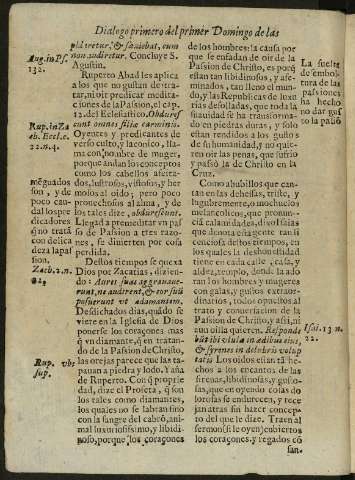 Dialogo primero del primer Domingo de las
plaudiretur, & sciebat, cum
non audiretur. Concluye S.
Agustin.
Ruperto Abad les aplica
a los que no gustan de tratar,
ni oir predicar meditaciones
de la Passion, el cap.
12. del Eclesiastico. Obdures
cunt omnes filiæ carminis.
Oyentes y predicantes de
verso culto, y laconico, llama
con nombre de muger,
porque andan los conceptos
como los cabellos afeitados,
lustrosos, vistosos, y hermosos
al oido; pero poco
prouechosos al alma, y de
los tales dize, obdurescunt.
Llegad a premeditar vn passo
de Passion a tres razones,
se diuierten por cosa
perdida.
Destos tiempos se quexa
Dios por Zacarias, diziendo:
Aures suas aggrauauerunt,
ne audirent, & cor suū
posuerunt vt adamantem.
Desdichados dias, quādo se
viere en la Iglesia de Dios
ponerse los coraçones mas
q̃ vn diamante, q̃ en tratando
de la Passion de Christo,
las orejas parece que las tapauan
a piedra y lodo. Y aña
de Ruperto. Con q̃ propriedad,
dize el Profeta, q̃ son
los tales como diamantes,
los quales no se labran sino
con la sangre del cabrō, animal
luxuriosissimo, y libidinoso,
porque los coraçones
de los hombres: la causa por
que se enfadan de oir de la
Passion de Christo, es porq̃
estan tan libidinosos, y afeminados,
tan lleno el mundo,
y las Republicas de luxurias
desolladas, que toda la
suauidad se ha transformado
en piedras duras, y solo
estan rendidos a los gustos
de su humanidad, y no quieren
oir las penas, que sufriò
y passò la de Christo en la
Cruz.
Como abubillos que cantan
en las dehesas, triste, y
lugubremente, o mochuelos
melancolicos, que pronuncia
calamidades, dixo Isaias
que denota esta gente tan sī
conciencia destos tiempos, en
los quales la deshonestidad
tiene en cada calle, casa, y
aldea, templo, donde la adoran
los hombres y mugeres
con galas, y gustos extraordinarios,
todos opuestos al
trato y conuersacion de la
Passion de Christo, y assi, ni
aun oilla quieren. Responde
būt ibi vlulæ in ædibus eius,
& syrenes in delubris voluptatis.
Los oidos están ta hechos
a los encantos de las
sirenas, libidinosas, y gustosas,
que en oyendo cosas dolorosas
se endurecen, y tocejan
atras sin hazer concepto
del que le dize. Traen al
sermon (si le oyen) cubiertos
los coraçones, y regados cō
san-
Aug. in Ps.
132.
Rup. in Za
ch. Eccl. c.
12. n. 4.
mēguados
son, y de
pocaduracion
los
predicadores
q̃ no tratā
con delicadeza
la pasion.
Zach. 2. n.
Rup. vbi
sup.
La suelte
de emboltura
de las
passiones
ha hecho
no dar gus
to la passiō
Isai. 13. n.
22.